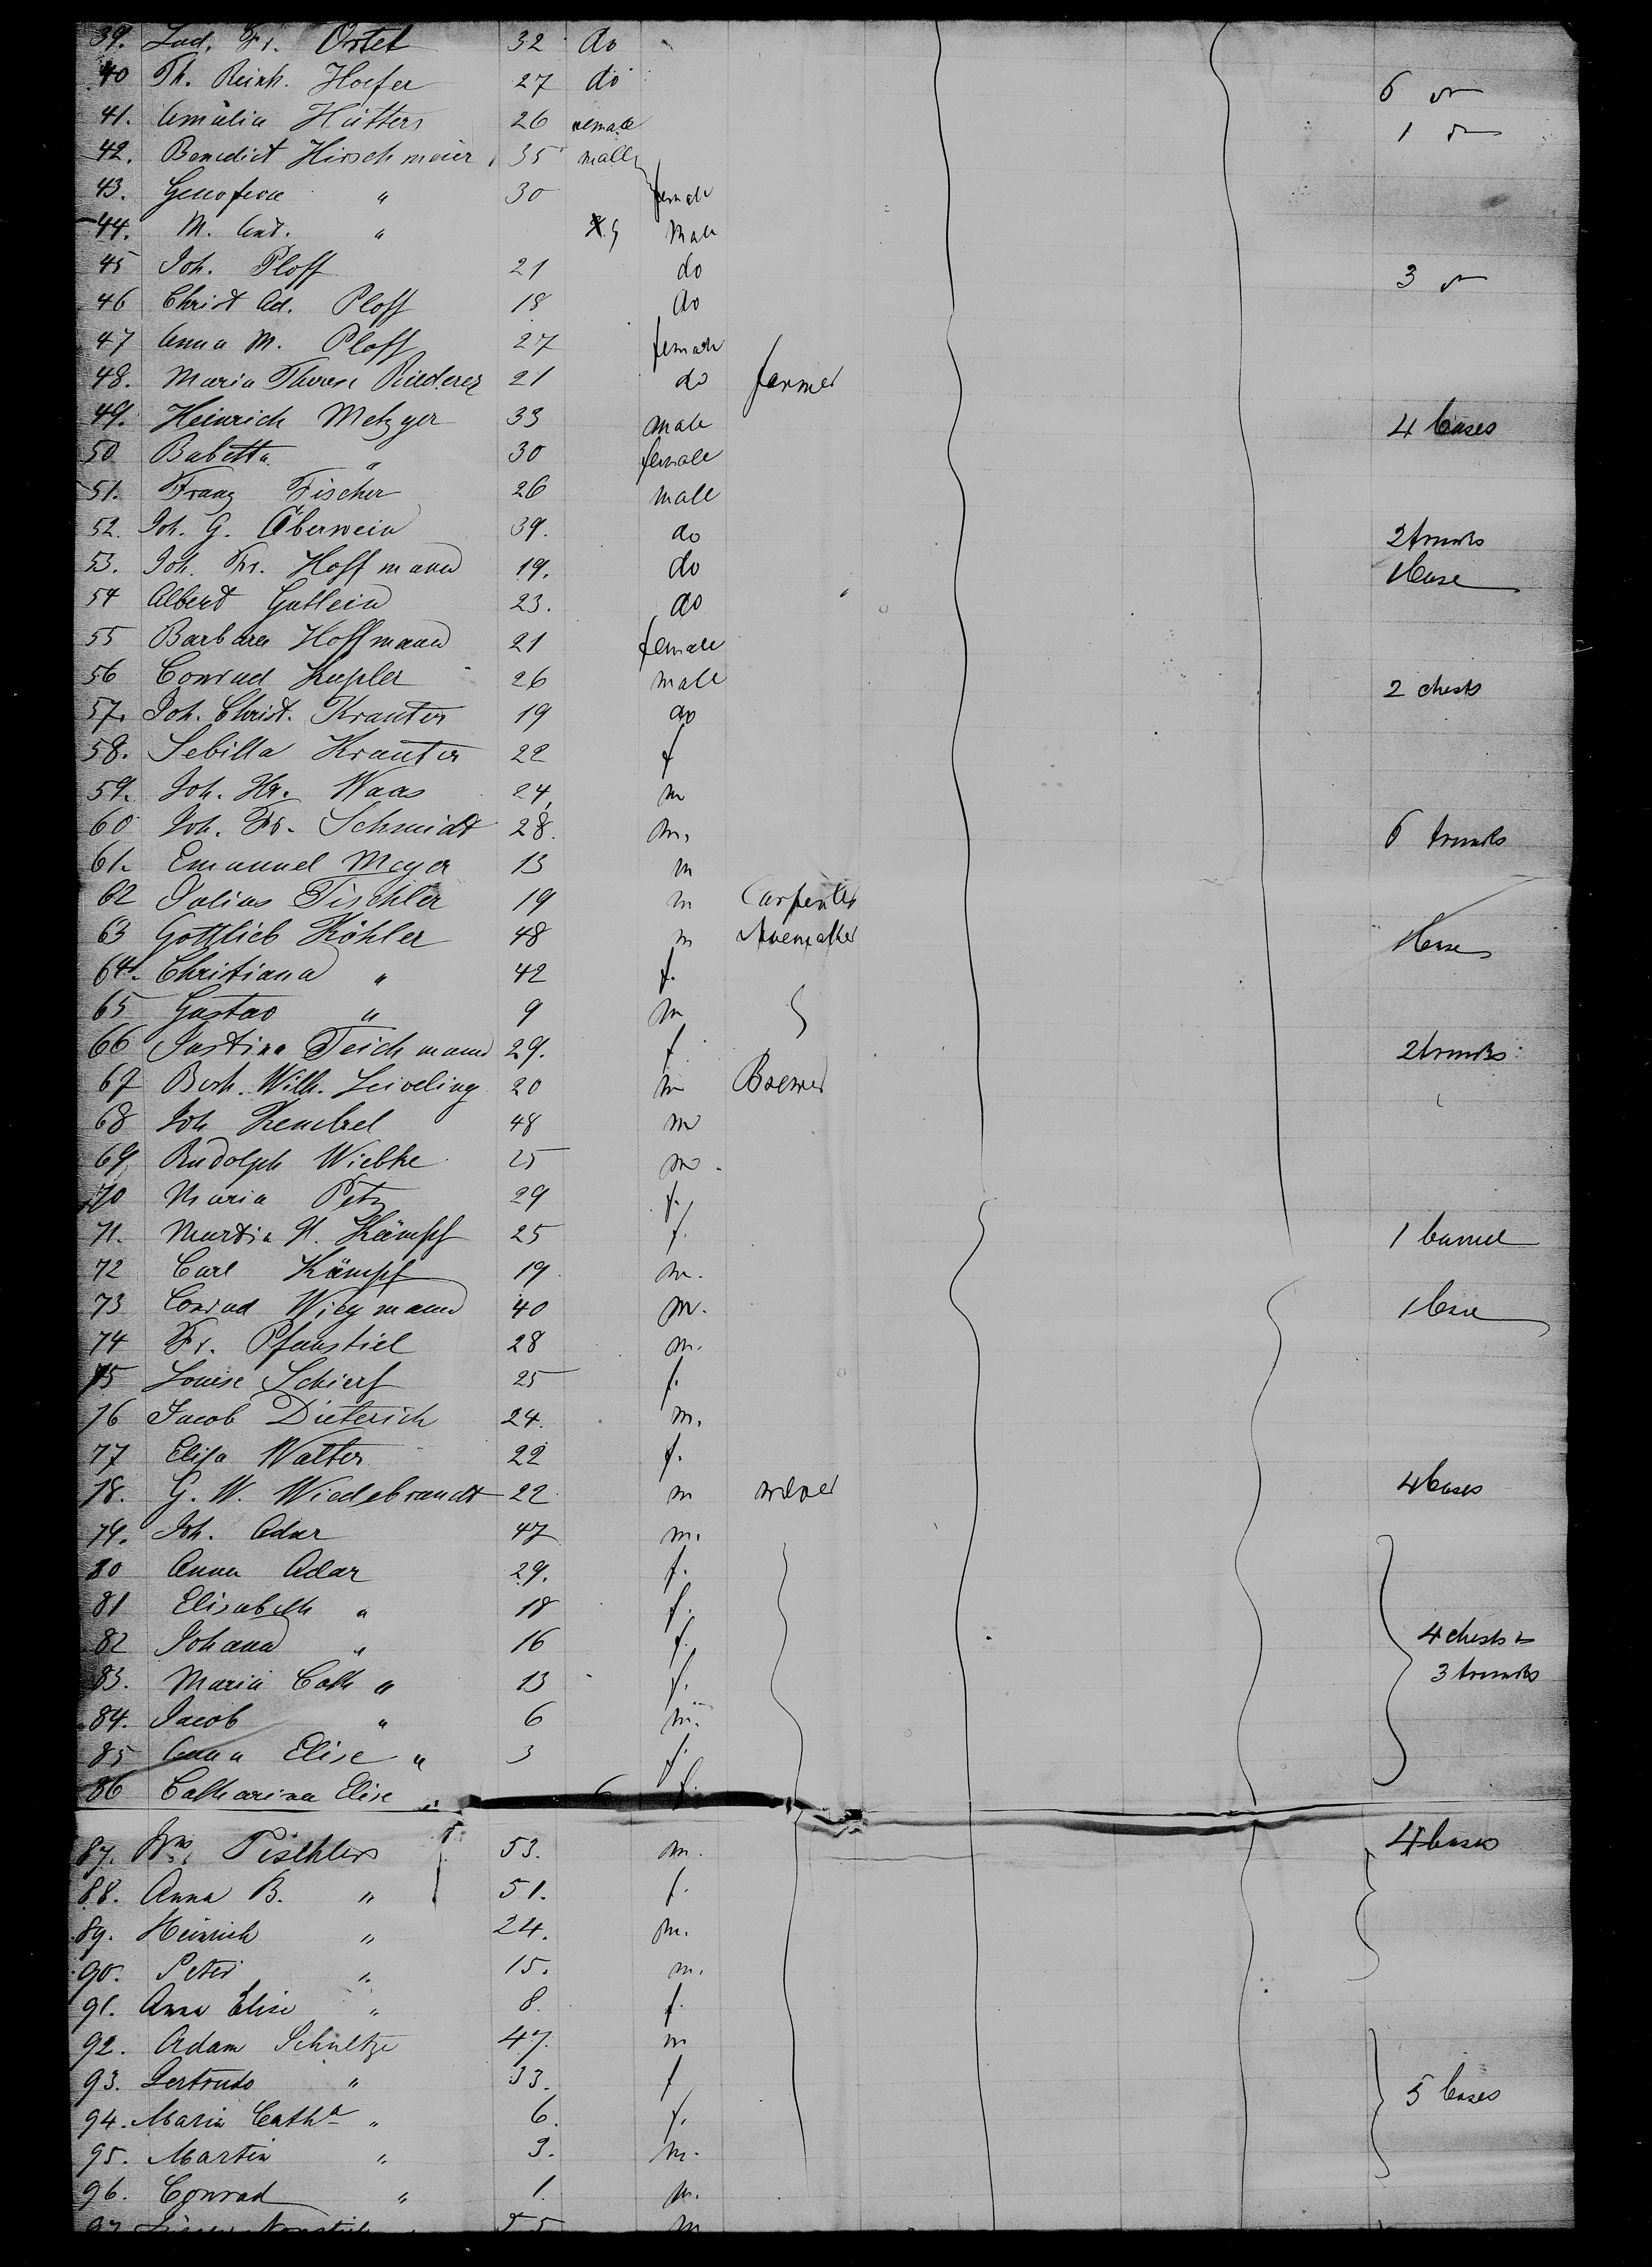 39. Lud. Fr. Ortel 32 do
40 Th. Reinh. Hoefer 27 do 6 do
41. Amalia Hütters 26 female 1 do
42. Benedict Hirschmeier 35 male
43. Genofeva " 30 female
44. M. Ant. " male
45 Joh. Ploff 21 do 3 do
46 Christ Ad. Ploff 18 do
47 Anna M. Ploff 27 female
48. Maria Therese Riederer 21 do farmer
49. Heinrich Metzger 33 male 4 Cases
50 Babetta " 30 female
51. Franz Fischer 26 male
52. Joh. G. Oberwein 39. do 2 trunks
53. Joh. Fr. Hoffmann 19. do 1 Case
54 Albert Gutlein 23. do
55 Barbara Hoffmann 21 female
56 Conrad Kepler 26 male 2 chests
57. Joh. Christ. Kranter 19 do
58. Sebilla Kranter 22 f
59. Joh. Hr. Waas 24, m
60 Joh. Fr. Schmidt 28. m. 6 trunks
61. Emanuel Meyer 13 m
62 Julius Tischler 19 m Carpenter
63 Gottlieb Köhler 48 m Shoemaker 1 Case
64. Christiana " 42 f.
65 Gustav " 9 m
66 Justina Teichmann 29. f 2 trunks
67 Berh. Wilh. 20 m Brewer
68 Joh 48 m
69, Rudolph Wiebke 25 m.
70 Maria Petz 29 f.
71. H. Kämpf 25 f. 1 barrel
72 Carl Kämpf 19 m.
73 Conrad Wiegmann 40 m. 1 Case
74 Fr. Pfanstiel 28 m.
75 Louise Schierf 25 f.
76 Jacob Dieterich 24. m.
77 Elisa Walter 22 f.
78. G. W. Wiedebrandt 22 m 4 Cases
79. Joh. Adar 47 m.
80 Anna Adar 29. f.
81 Elisabeth " 18 f.
82 Johana " 16 f. 4 chests &
83. Maria Cath " 13 f. 3 trunks
84. Jacob " 6 m.
85 Anna Elise " 3 f.
86 Catharina Elise " 6 f.
87. Tischler 53. m. 4 Cases
88. Anna B. " 51. f.
89. Heinrich " 24. m.
90. Peter " 15. m.
91. Anna Elise " 8. f.
92. Adam Schultze 47. m
93. Gertrude " 33. f 5 Cases
94. Maria Catha " 6. f.
95. Martin " 3. m.
96. Conrad " 1. m.
97 55 m